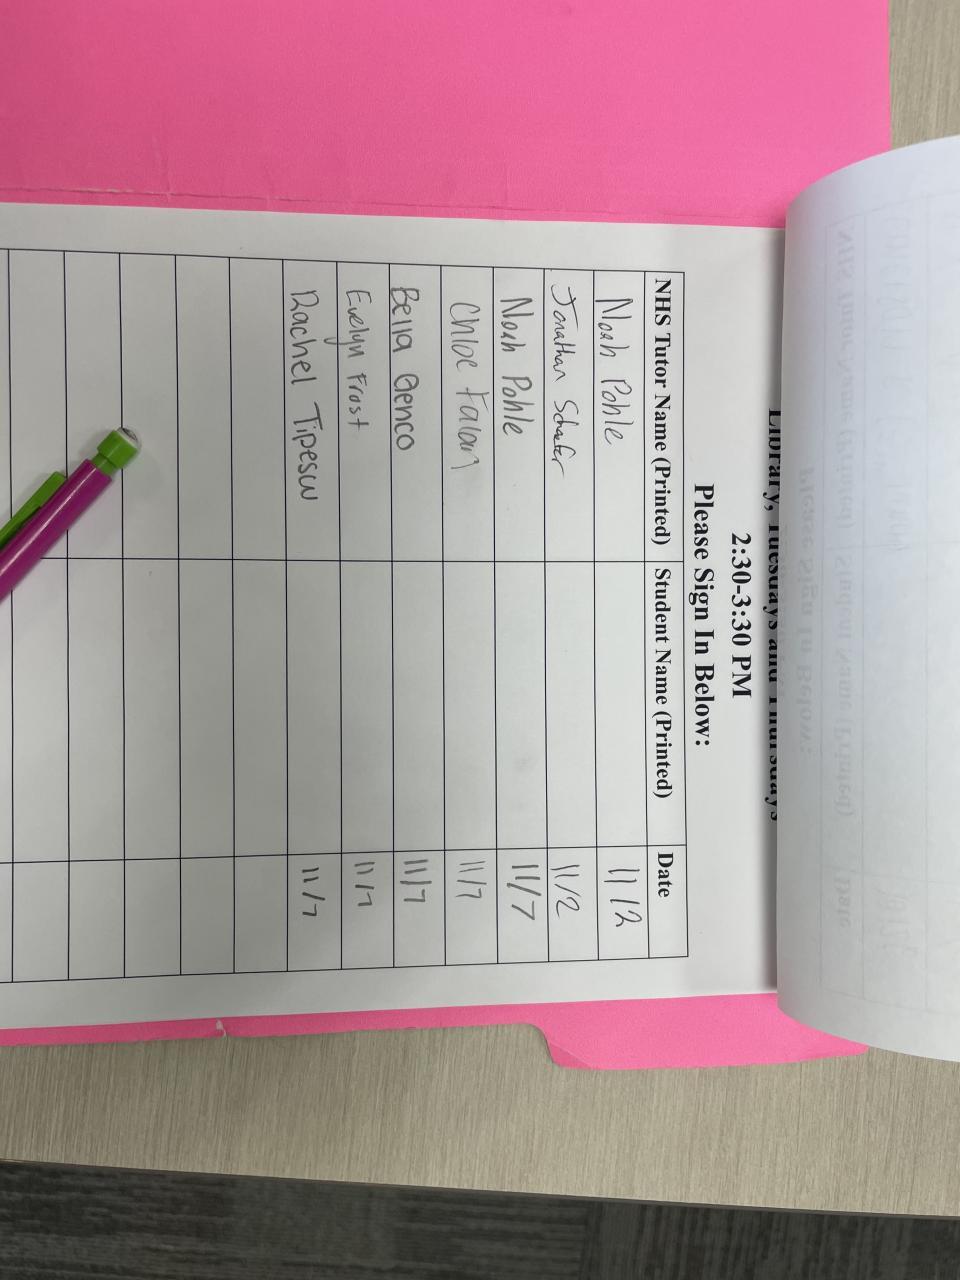 Library, Tuesdays and Thursdays
2:30-3:30 PM
Please Sign In Below:
NHS Tutor Name (Printed) Student Name (Printed) Date
Noah Pohle 11/2
Jonathan Schaefer 11/2
Noah Pohle 11/7
Chloe 11/7
Bella Genco 11/7
Evelyn Frost 11/7
Rachel Tipesw 11/7